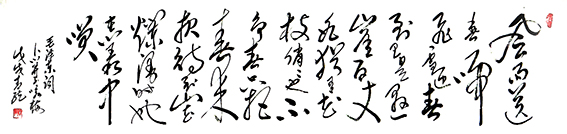 风雨送
春归
飞雪迎春
到已是悬
崖百丈
冰犹有花
枝俏俏也不
争春只把
春来
报待到山花
烂漫时她
在丛中
笑
毛泽东词
卜算子咏梅
戊戌